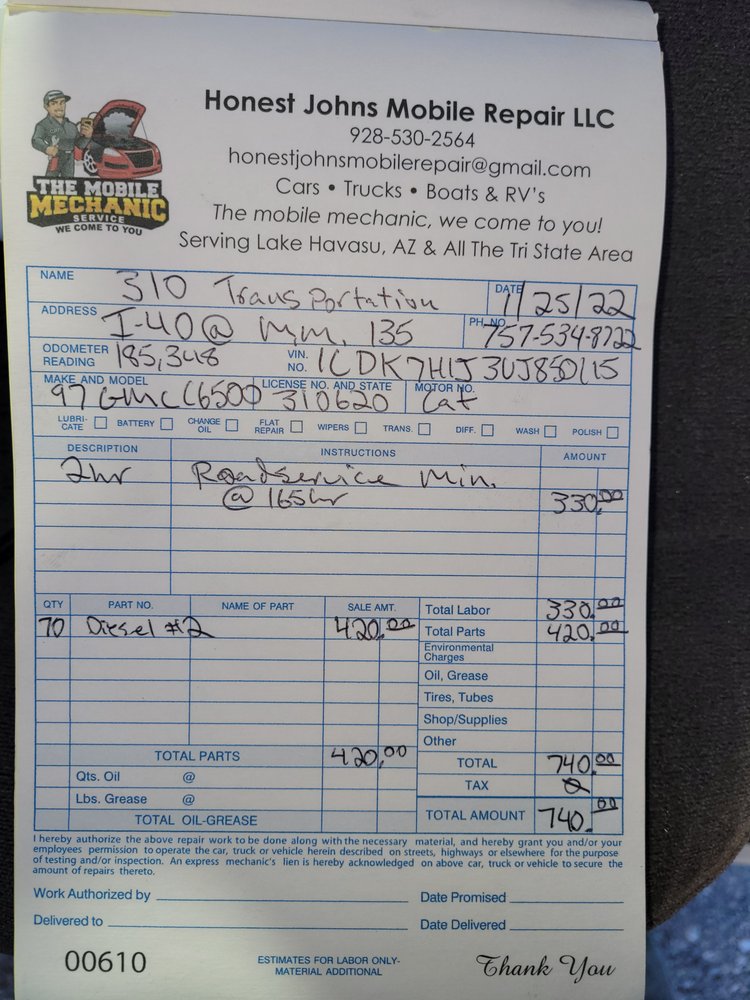 Honest Johns Mobile Repair LLC
928-530-2564
honestjohnsmobilerepair@gmail.com
Cars • Trucks • Boats & RV's
The mobile mechanic, we come to you!
Serving Lake Havasu, AZ & All The Tri State Area
THE MOBILE
MECHANIC
SERVICE
WE COME TO YOU
NAME 310 Transportation DATE 1/25/22
ADDRESS I-40 @ m.m. 135 PH. NO. 757-534-8722
ODOMETER READING 185,348 VIN. NO. 1CDK7H1J3VJ850115
MAKE AND MODEL 97 GMC C6500 LICENSE NO. AND STATE 310620 MOTOR NO. Cat
LUBRI-CATE BATTERY CHANGE OIL FLAT REPAIR WIPERS TRANS. DIFF. WASH POLISH
DESCRIPTION INSTRUCTIONS AMOUNT
2hr Roadservice Min.
@ 165hr 330.00
QTY PART NO. NAME OF PART SALE AMT. Total Labor 330.00
70 Diesel #2 420.00 Total Parts 420.00
Environmental Charges
Oil, Grease
Tires, Tubes
Shop/Supplies
Other
TOTAL PARTS 420.00 TOTAL 740.00
Qts. Oil @ TAX 0
Lbs. Grease @
TOTAL OIL-GREASE TOTAL AMOUNT 740.00
I hereby authorize the above repair work to be done along with the necessary material, and hereby grant you and/or your
employees permission to operate the car, truck or vehicle herein described on streets, highways or elsewhere for the purpose
of testing and/or inspection. An express mechanic's lien is hereby acknowledged on above car, truck or vehicle to secure the
amount of repairs thereto.
Work Authorized by Date Promised
Delivered to Date Delivered
00610 ESTIMATES FOR LABOR ONLY-
MATERIAL ADDITIONAL Thank You